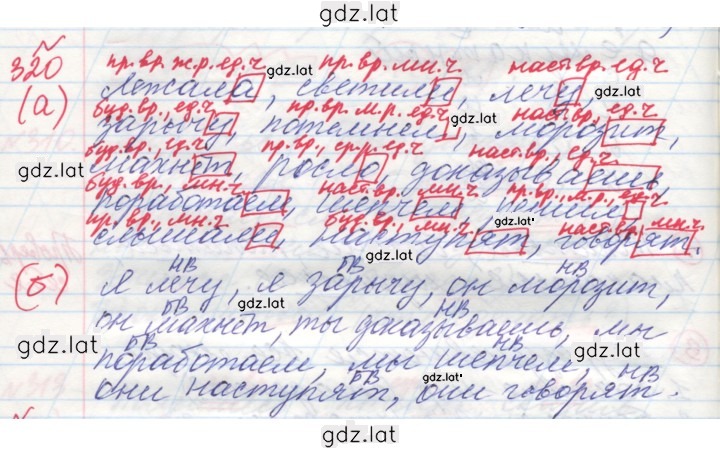 gdz.lat
320
пр.вр. ж.р. ед.ч. пр.вр. мн.ч. наст.вр. ед.ч. gdz.lat
(а) Лежала, светили, лечу, gdz.lat
буд.вр., ед.ч. пр.вр. м.р. ед.ч. наст.вр., ед.ч.
зарычу, потемнел, морозит,
буд.вр., ед.ч. пр.вр., ср.р., ед.ч. наст.вр., ед.ч.
gdz.lat махнёт, росло, доказываешь,
буд.вр., мн.ч. наст.вр., мн.ч. пр.вр., м.р., ед.ч.
поработаем, шепчем, gdz.lat
пр.вр., мн.ч. буд.вр., мн.ч. наст.вр., мн.ч.
gdz.lat слышали, наступят, говорят.
НВ БВ НВ
(б) Я лечу, я зарычу, он морозит,
БВ НВ
он махнёт, ты доказываешь, мы
gdz.lat БВ НВ gdz.lat
поработаем, мы шепчем,
БВ gdz.lat НВ
они наступят, они говорят.
gdz.lat